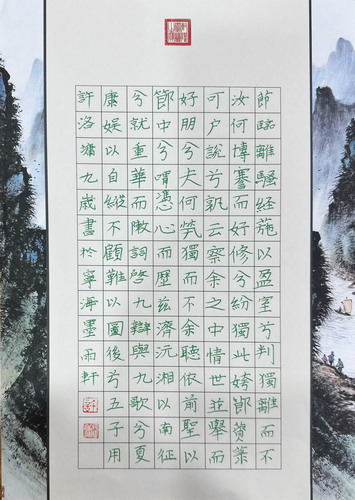 節臨離騷经葹以盈室兮判獨離而不
汝何博謇而好修兮紛獨此姱節薋菉
可户說兮孰云察余之中情世並舉而
好朋兮夫何茕獨而不余聽依前聖以
節中兮喟憑心而歷兹濟沅湘以南征
兮就重華而敶詞啓九辯與九歌兮夏
康娱以自縱不顧難以圖後兮五子用
許洛瀟九歲書於寧海墨雨軒